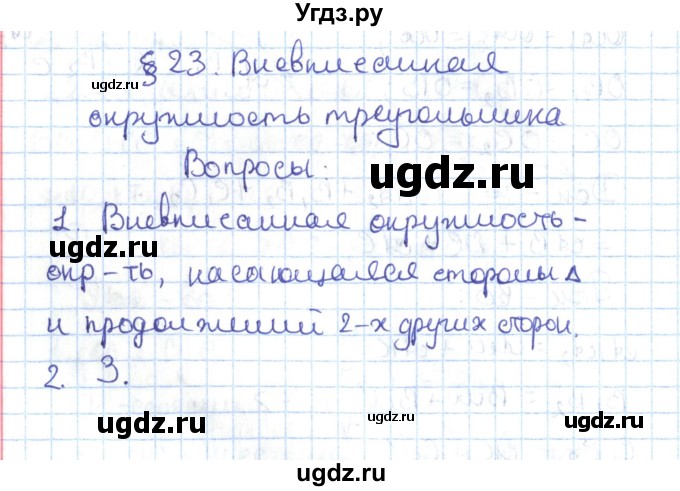 Угдз.ру
§ 23. Вневписанная
ugdz.ru
ugdz.ru
окружность треугольника
Вопросы:
ugdz.ru
1. Вневписанная окружность -
ugdz.ru
окр-ть, касающаяся стороны Δ
и продолжений 2-х других сторон.
2. 3.
ugdz.ru
ugdz.ru
ugdz.ru
ugdz.ru